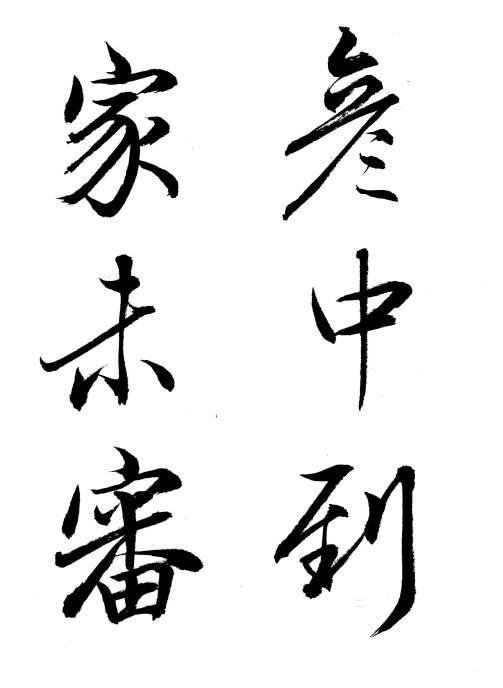 彦中到
家未審